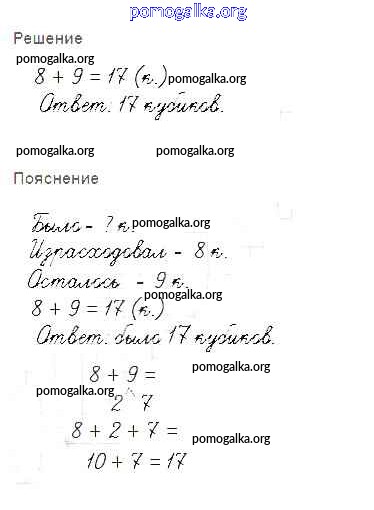 pomogalka.org
Решение
pomogalka.org
8 + 9 = 17 (к.) pomogalka.org
Ответ: 17 кубиков.
pomogalka.org pomogalka.org
Пояснение
Было - ? к. pomogalka.org
Израсходовал - 8 к.
Осталось - 9 к.
pomogalka.org
8 + 9 = 17 (к.)
Ответ: было 17 кубиков.
8 + 9 = pomogalka.org
pomogalka.org
2 7
8 + 2 + 7 = pomogalka.org
10 + 7 = 17